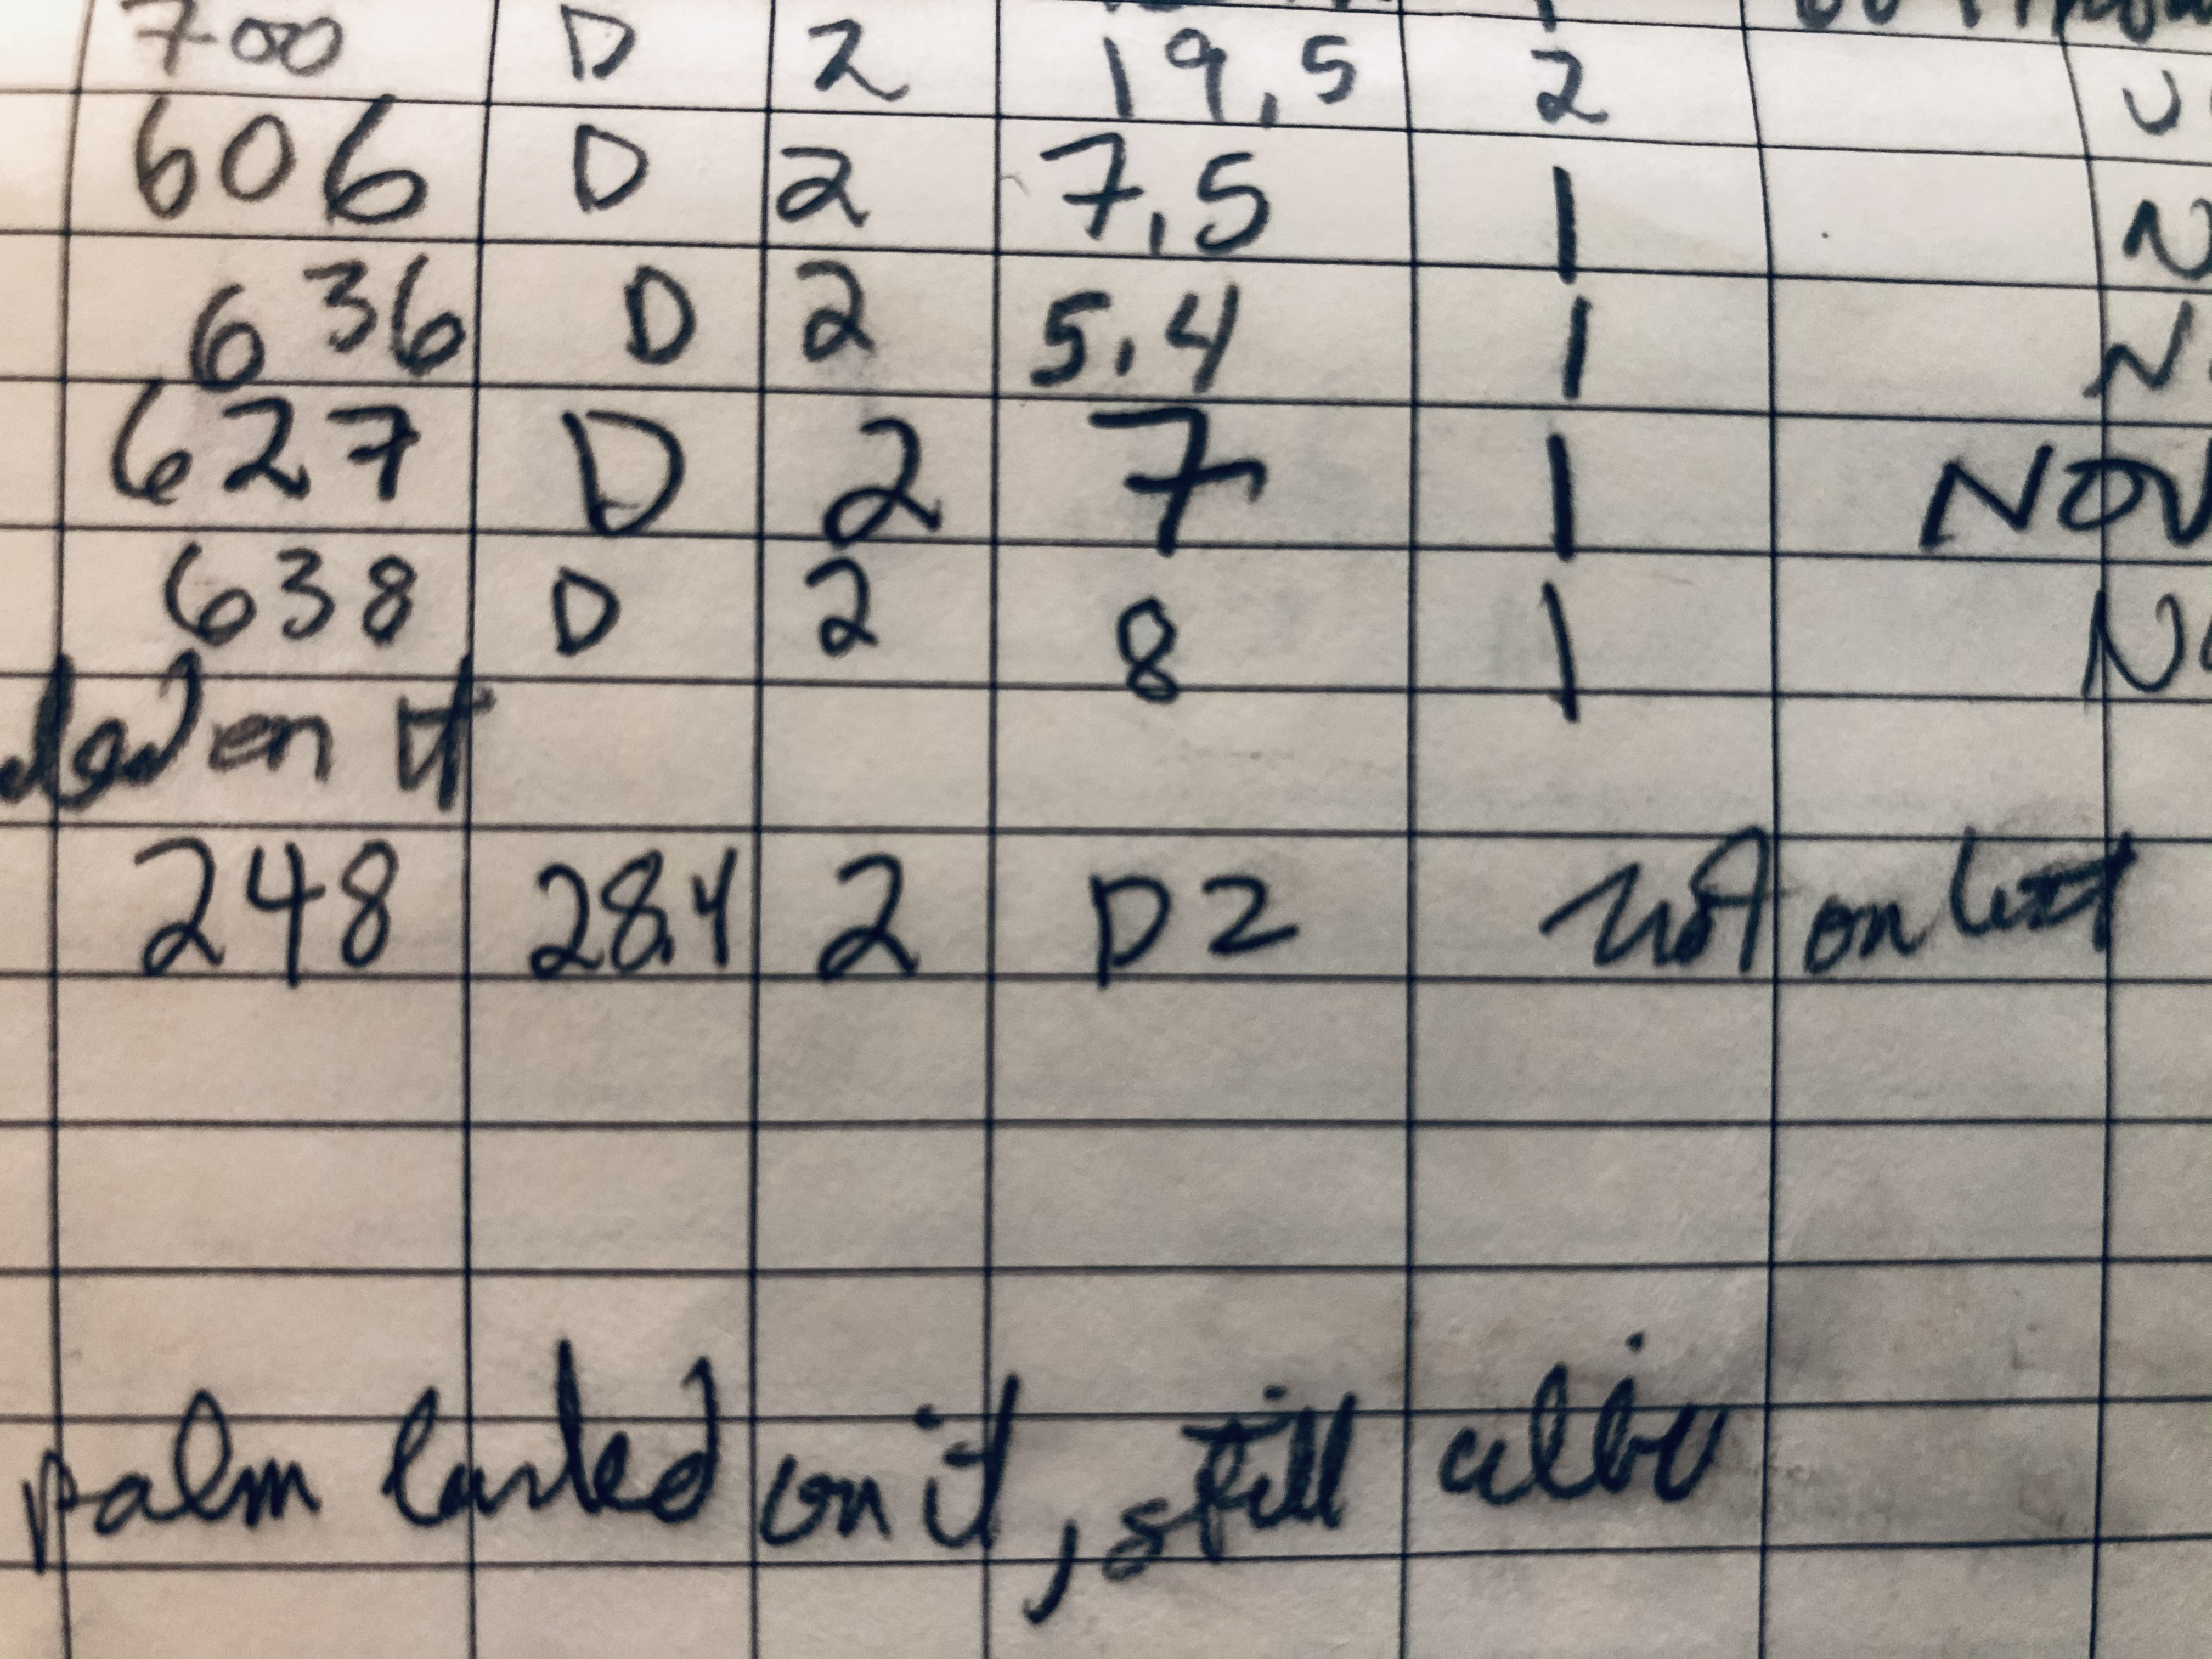 700 D 2 19,5 2 U
606 D 2 7,5 1 N
636 D 2 5,4 1 N
627 D 2 7 1 NOV
638 D 2 8 1 NO
ded on it
248 28.4 2 D2 not on list
palm landed on it, still alive